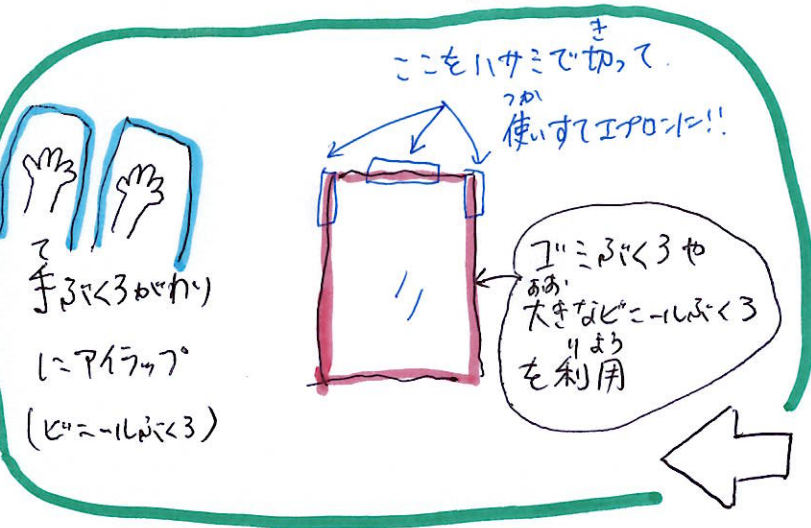 ここをハサミで切って
き
使いすてエプロンに!!
つか
手ぶくろがわり
て
にアイラップ
(ビニールぶくろ)
ゴミぶくろや
大きなビニールぶくろ
おお
を利用
りよう